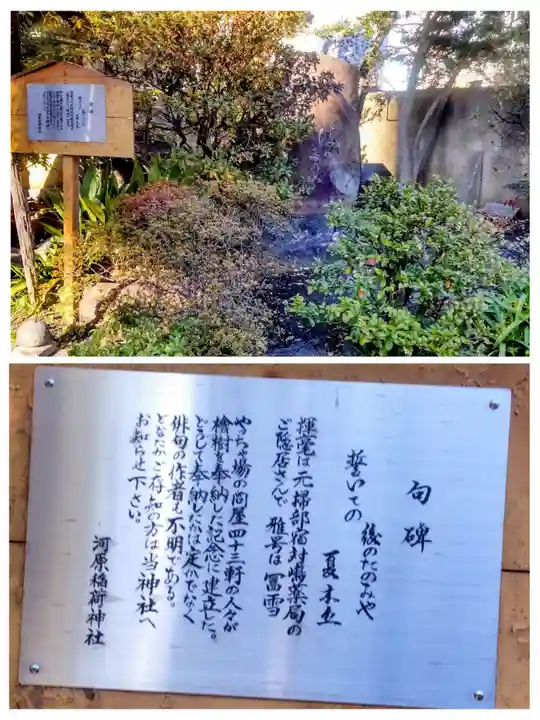 句碑
後のたのみや
誓いての
夏木立
揮毫は元掃部宿対嶋薬局の
ご隠居さんで 雅号は冨雪
やっちゃ場の問屋四十三軒の人々が
檜樹を奉納した記念に建立した。
どうして奉納したかは定かでなく
俳句の作者も不明である。
どなたかご存知の方は当神社へ
お知らせ下さい。
河原稲荷神社